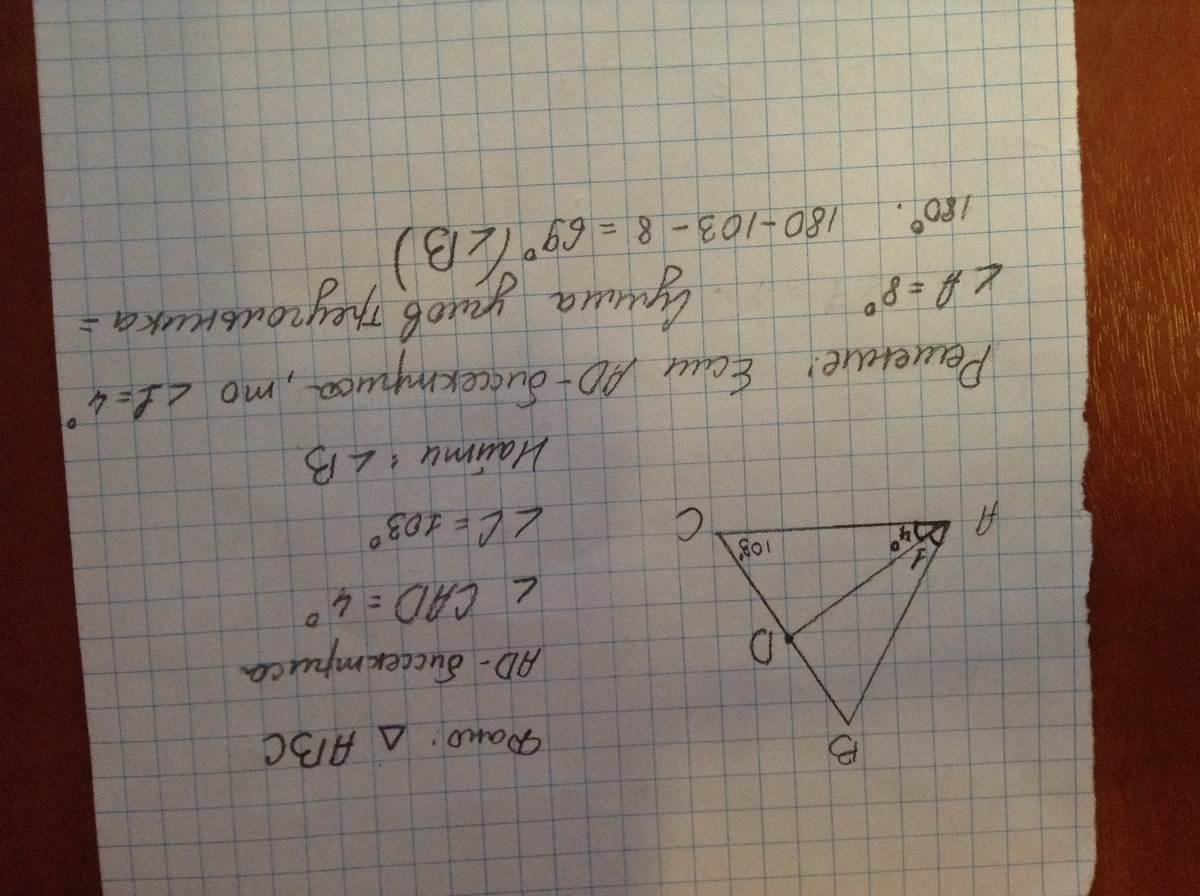 B
D
A
1
4°
103°
C
Дано: △ ABC
AD - биссектриса
∠ CAD = 4°
∠C = 103°
Найти: ∠B
Решение: Если AD - биссектриса, то ∠1 = 4°
∠A = 8° Сумма углов треугольника =
180°. 180 - 103 - 8 = 69° (∠B)